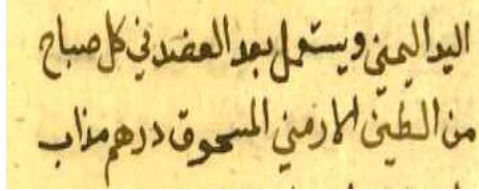 اليد اليمنى ويستعمل بعد الفصد في كل صباح
من الطين الارمني المسحوق درهم مذاب